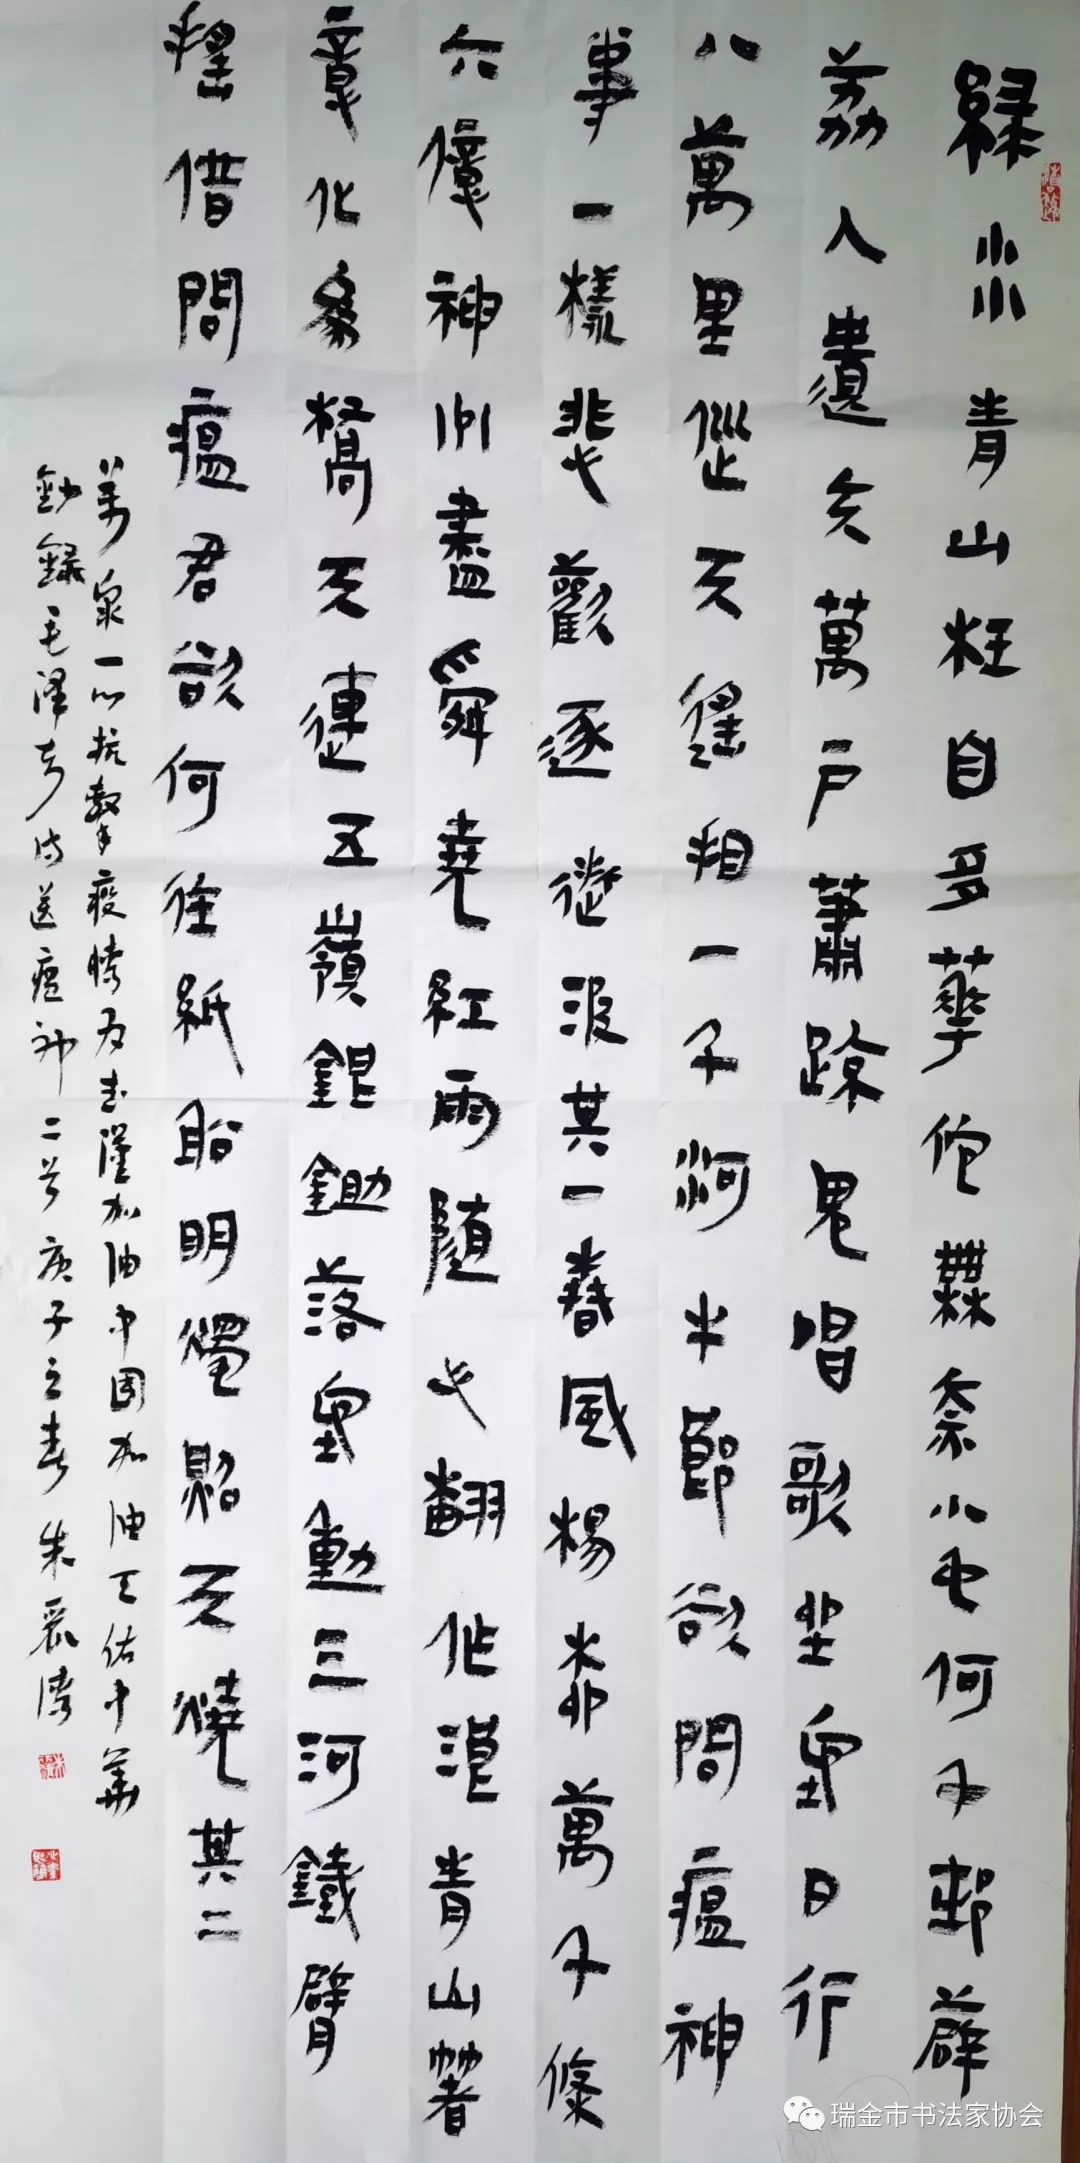 綠水青山枉自多華佗無奈小虫何千邨薜
荔人遺矢萬戶蕭疎鬼唱歌坐地日行
八萬里巡天遙看一千河牛郎欲問瘟神
事一樣悲歡逐逝波其一春風楊柳萬千條
六億神州盡舜堯紅雨隨心翻作浪青山著
意化為橋天連五嶺銀鋤落地動三河鐵臂
搖借問瘟君欲何往紙船明燭照天燒其二
萬衆一心抗擊疫情為武漢加油中國加油天佑中華
錄毛澤東詩送瘟神二首庚子立春朱
瑞金市书法家协会